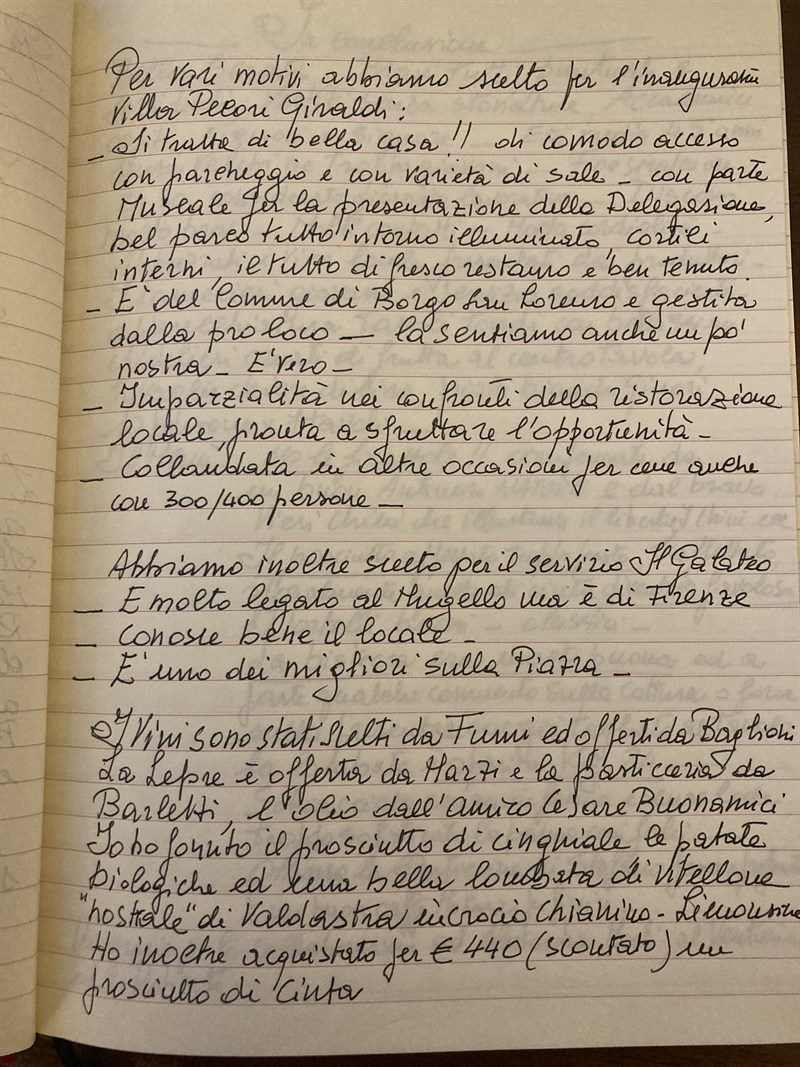 Per vari motivi abbiamo scelto per l'inaugurazione
Villa Pecori Giraldi:
_ Si tratta di bella casa!! di comodo accesso
con parcheggio e con varietà di sale _ con parte
Museale per la presentazione della Delegazione,
bel parco tutto intorno illuminato, cortili
interni, il tutto di fresco restauro e ben tenuto.
_ E' del Comune di Borgo San Lorenzo e gestita
dalla pro loco _ la sentiamo anche un po'
nostra _ E' vero _
_ Imparzialità nei confronti della ristorazione
locale, pronta a sfruttare l'opportunità _
_ Collaudata in altre occasioni per cene anche
con 300/400 persone _
Abbiamo inoltre scelto per il servizio Il Galateo
_ E molto legato al Mugello ma è di Firenze
_ Conosce bene il locale _
_ E' uno dei migliori sulla Piazza _
I Vini sono stati scelti da Fumi ed offerti da Baglioni
La Lepre è offerta da Marzi e la pasticceria da
Barletti, l'olio dall'amico Cesare Buonamici
Io ho fornito il prosciutto di cinghiale le patate
biologiche ed una bella lombata di Vitellone
"nostrale" di Valdastra incrocio Chianino - Limousine
Ho inoltre acquistato per € 440 (scontato) un
prosciutto di Cinta